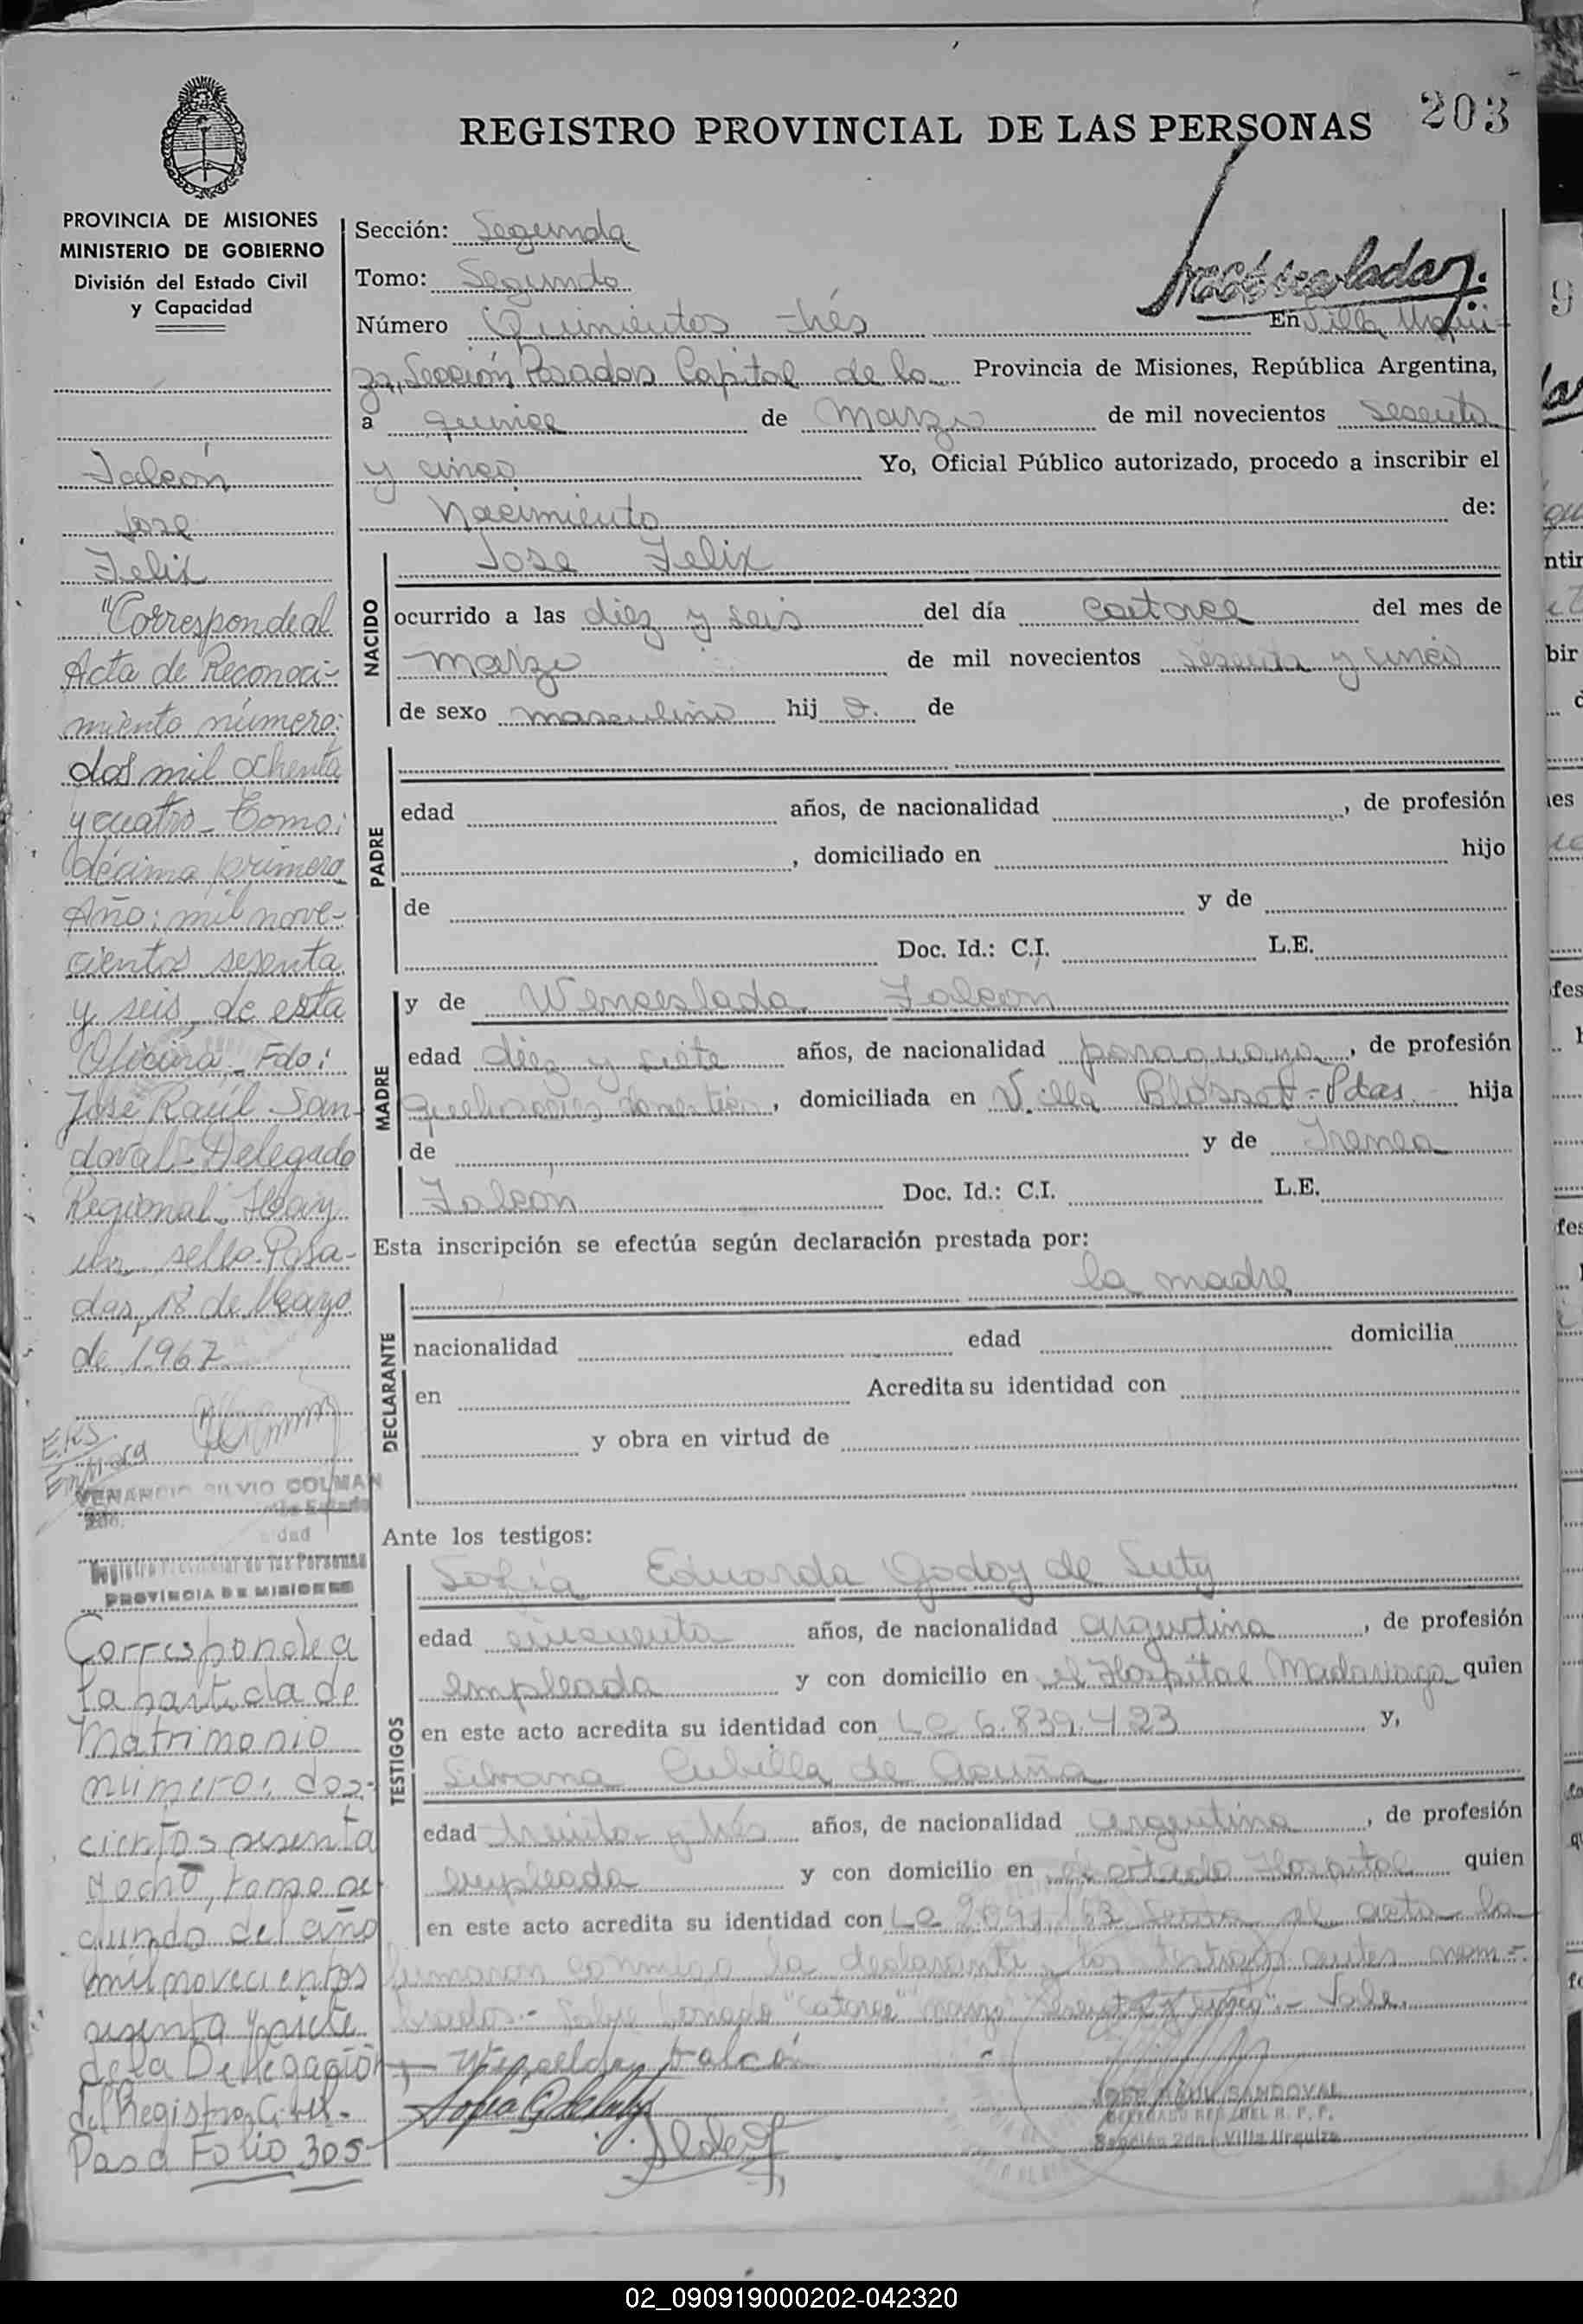 203
REGISTRO PROVINCIAL DE LAS PERSONAS
PROVINCIA DE MISIONES
MINISTERIO DE GOBIERNO
División del Estado Civil
y Capacidad
Falcón
Jose
Felix
"Corresponde al
Acta de Reconoci-
miento número:
dos mil ochenta
y cuatro - Tomo:
décimo primero
Año: mil nove-
cientos sesenta
y seis, de esta
Oficina - Fdo:
José Raúl San-
doval - Delegado
Regional - Hay
un sello - Posa-
das, 18 de Mayo
de 1967
VENANCIO SILVIO COLMAN
Registro Provincial de las Personas
PROVINCIA DE MISIONES
Corresponde a
la partida de
Matrimonio
número: dos-
cientos sesenta
y ocho, tomo se
gundo del año
mil novecientos
sesenta y siete
de la Delegación
del Registro Civil-
Pasa Folio 305
Sección: Segunda
Tomo: Segundo
Número Quinientos trés En Villa Urqui-
za, Sección Posadas Capital de la Provincia de Misiones, República Argentina,
a quince de Marzo de mil novecientos sesenta
y cinco Yo, Oficial Público autorizado, procedo a inscribir el
Nacimiento de:
NACIDO
Jose Felix
ocurrido a las diez y seis del día catorce del mes de
marzo de mil novecientos sesenta y cinco
de sexo masculino hij o. de
PADRE
edad años, de nacionalidad , de profesión
, domiciliado en hijo
de y de
Doc. Id.: C.I. L.E.
MADRE
y de Wenceslada Falcon
edad diez y siete años, de nacionalidad paraguaya, de profesión
quehaceres domestico, domiciliada en Villa Blosset - Pdas. hija
de y de Irenea
Falcón Doc. Id.: C.I. L.E.
Esta inscripción se efectúa según declaración prestada por:
DECLARANTE
la madre
nacionalidad edad domicilia
en Acredita su identidad con
y obra en virtud de
Ante los testigos:
TESTIGOS
Sofia Eduarda Godoy de Suty
edad cincuenta años, de nacionalidad argentina, de profesión
empleada y con domicilio en el Hospital Madariaga quien
en este acto acredita su identidad con LC 6.839.423 y,
Silvana Cubilla de Acuña
edad treinta y trés años, de nacionalidad argentina, de profesión
empleada y con domicilio en el citado Hospital quien
en este acto acredita su identidad con LC
firmaron conmigo la declarante y los testigos antes nom-
brados.- Sobre borrado "catorce" marzo "sesenta y cinco" - Vale.
Falcón
Sofia G de Suty
JOSE RAUL SANDOVAL
DELEGADO REG. DEL R. P. P.
Sección 2da. Villa Urquiza
02_090919000202-042320